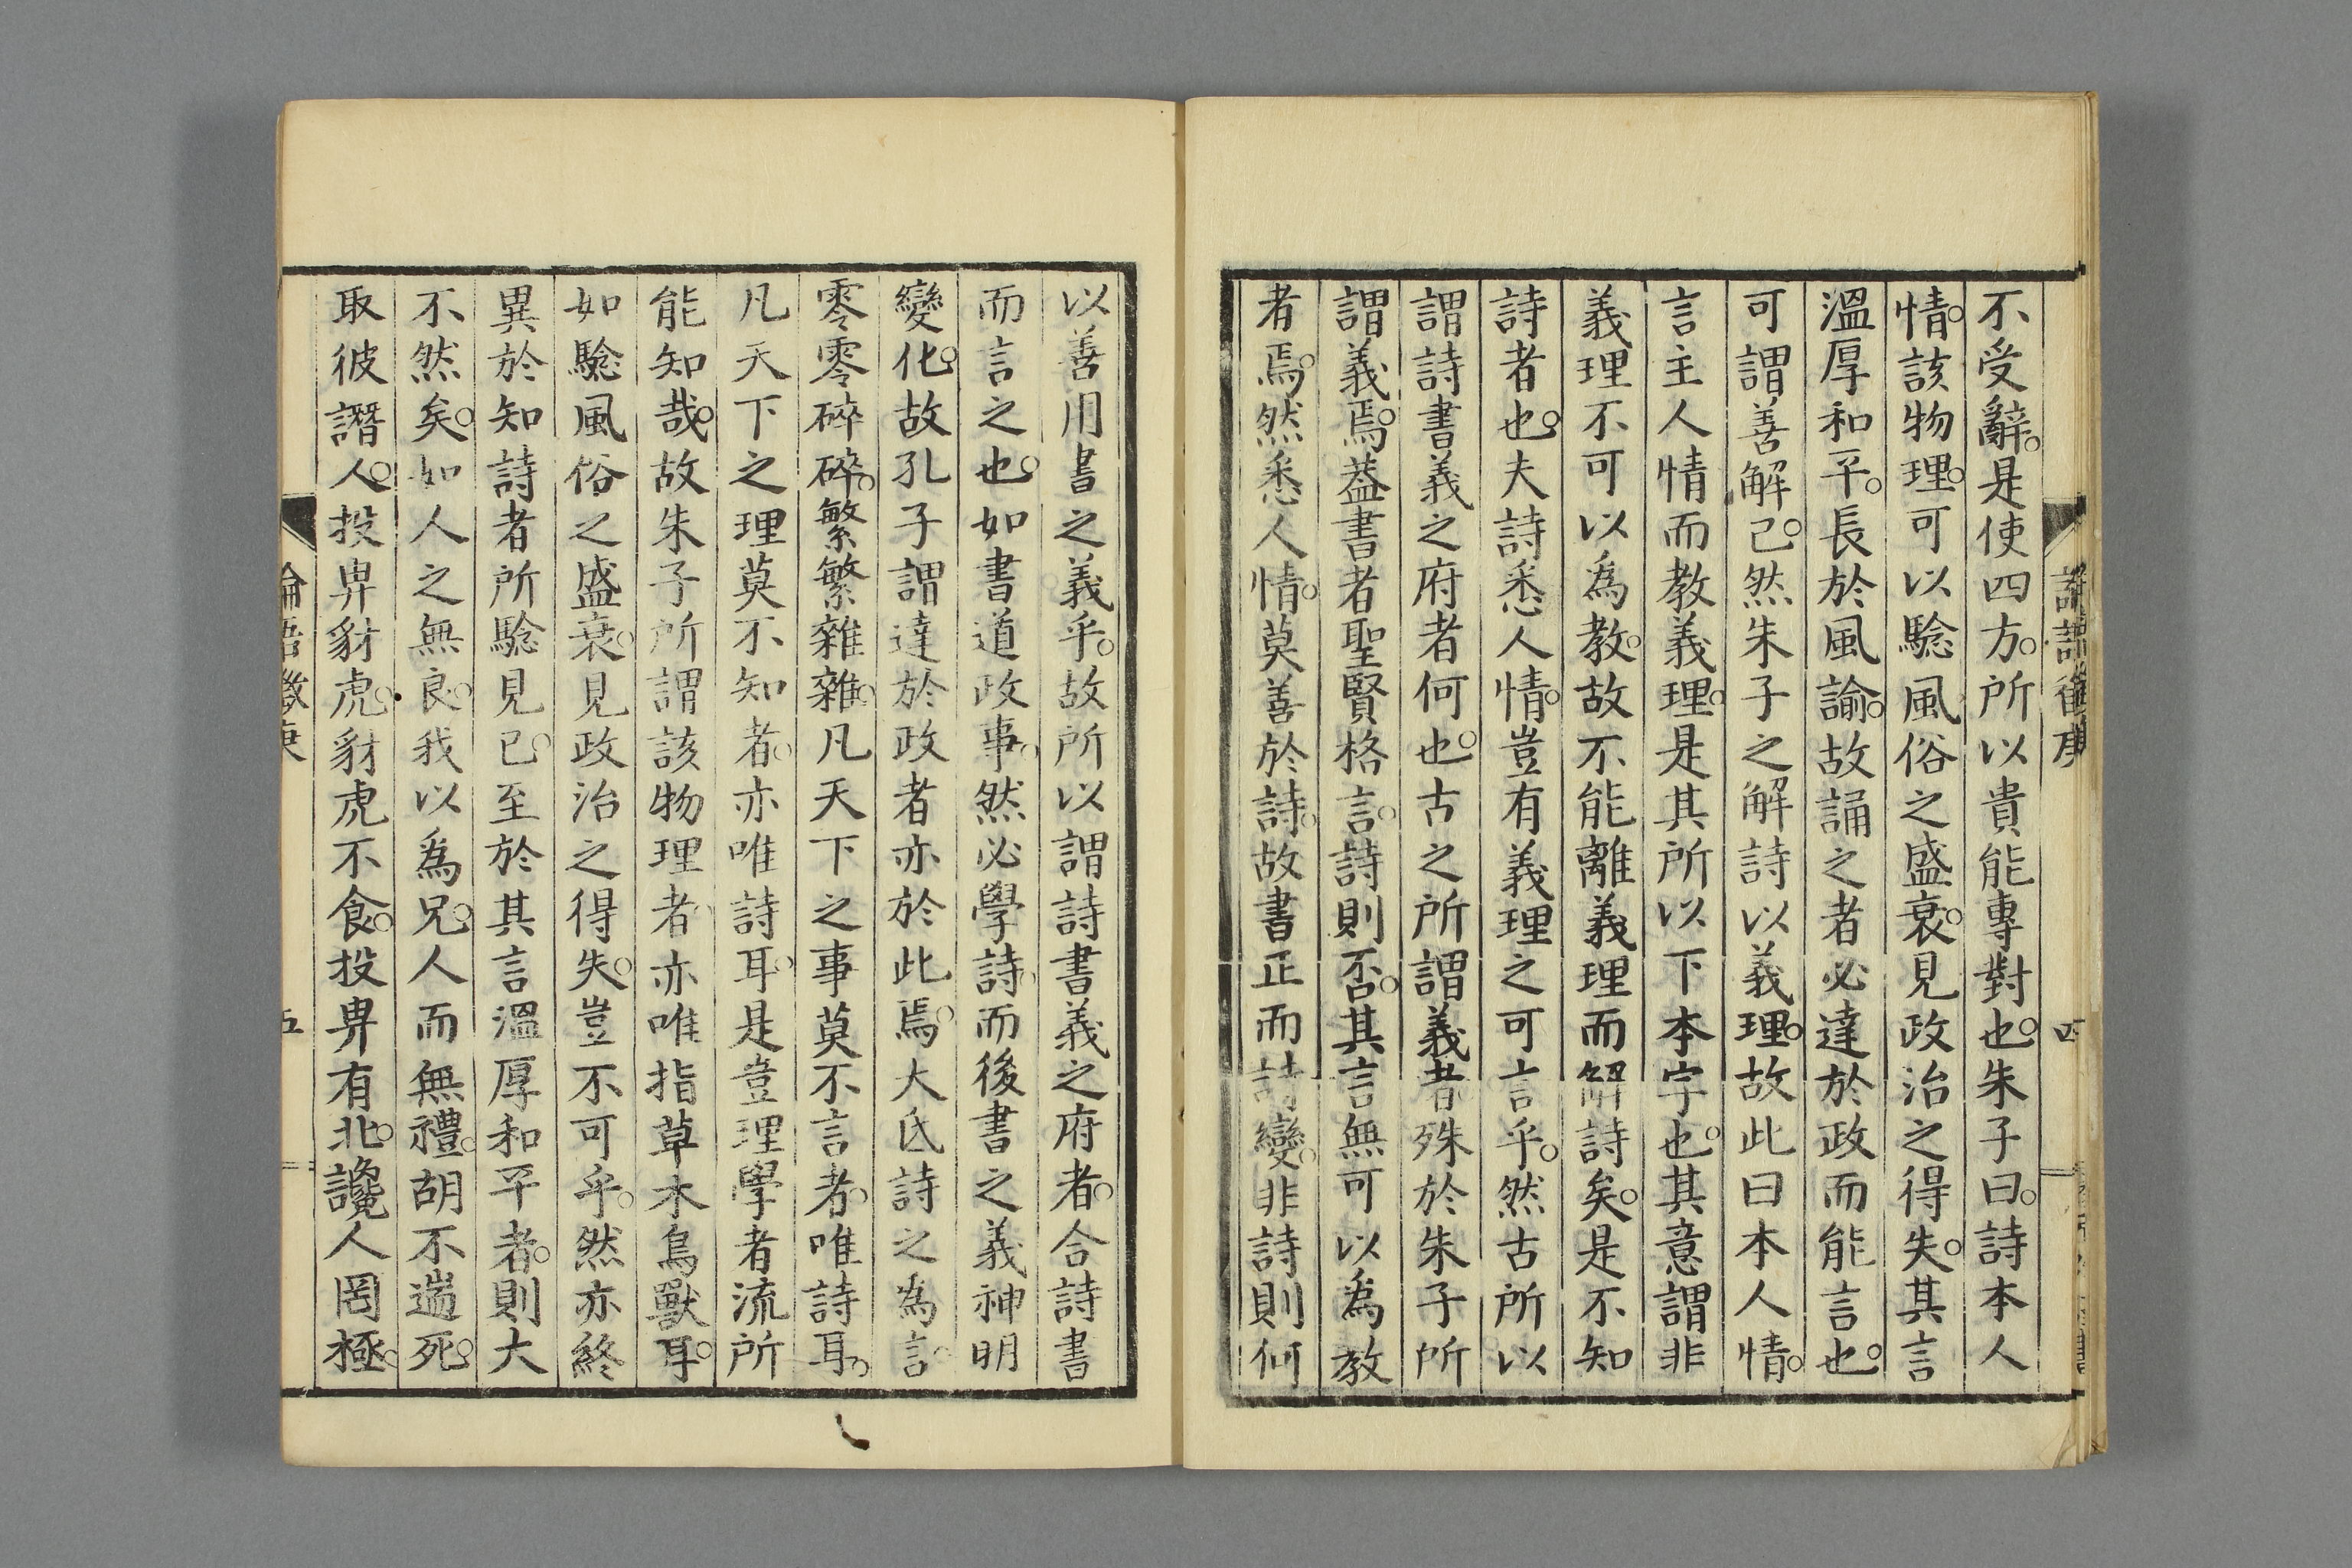 不受辭。是使四方。所以貴能專對也。朱子曰。詩本人
情。該物理。可以驗風俗之盛衰。見政治之得失。其言
溫厚和平。長於風諭。故誦之者必達於政而能言也。
可謂善解已。然朱子之解詩以義理。故此曰本人情。
言主人情而教義理。是其所以下本字也。其意謂非
義理不可以爲教。故不能離義理而解詩矣。是不知
詩者也。夫詩悉人情。豈有義理之可言乎。然古所以
謂詩書義之府者何也。古之所謂義者殊於朱子所
謂義焉。葢書者聖賢格言。詩則否。其言無可以爲教
者焉。然悉人情。莫善於詩。故書正而詩變。非詩則何
四
以善用書之義乎。故所以謂詩書義之府者。合詩書
而言之也。如書道政事。然必學詩。而後書之義神明
變化。故孔子謂達於政者亦於此焉。大氐詩之為言。
零零碎碎。繁繁雜雜。凡天下之事莫不言者。唯詩耳。
凡天下之理莫不知者。亦唯詩耳。是豈理學者流所
能知哉。故朱子所謂該物理者。亦唯指草木鳥獸耳。
如驗風俗之盛衰。見政治之得失。豈不可乎。然亦終
異於知詩者所驗見已。至於其言溫厚和平者。則大
不然矣。如人之無良。我以為兄。人而無禮。胡不遄死。
取彼譖人。投畀豺虎。豺虎不食。投畀有北。讒人罔極。
論語徵庚
五